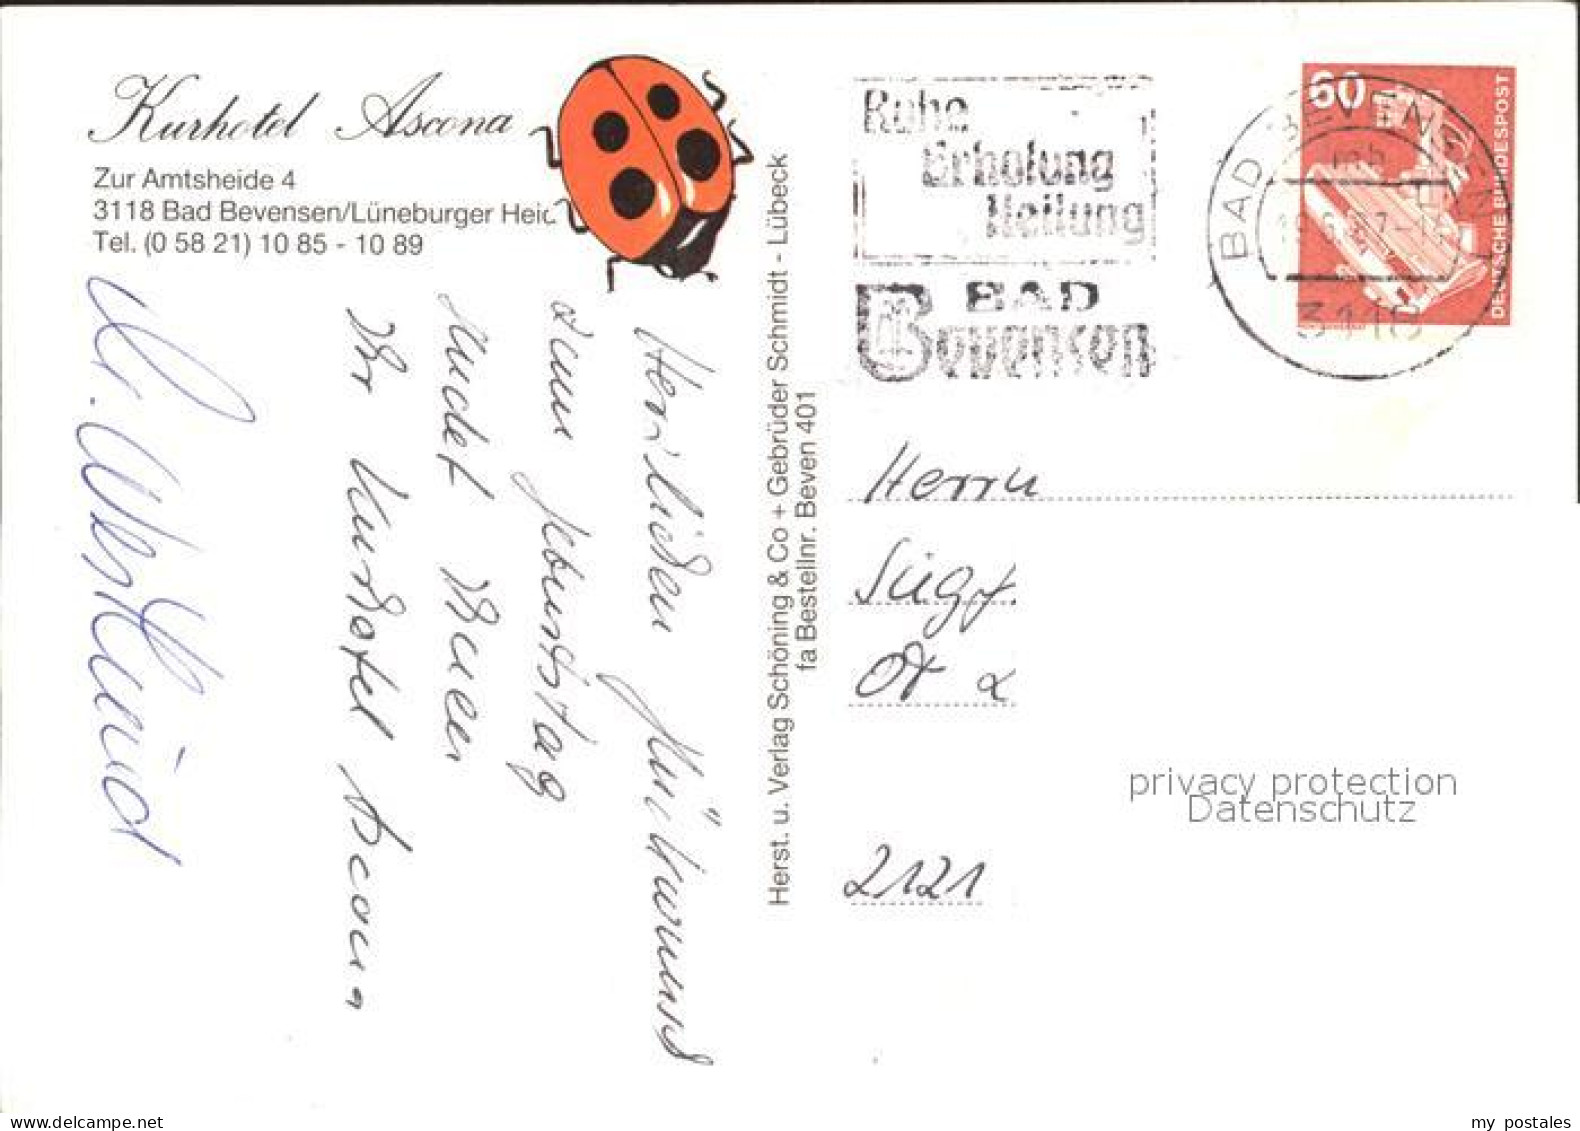 Kurhotel Ascona
Zur Amtsheide 4
3118 Bad Bevensen/Lüneburger Heid
Tel. (0 58 21) 10 85 - 10 89
Herzlichen Glückwunsch
zum Geburtstag
sendet Ihnen
Ihr Kurhotel Ascona
Herst. u. Verlag Schöning & Co + Gebrüder Schmidt - Lübeck
fa Bestellnr. Beven 401
Ruhe
Erholung
Heilung
BAD
Bevensen
BAD BEVENSEN
mb
3118
60
DEUTSCHE BUNDESPOST
Herrn
2121
privacy protection
Datenschutz
my postales